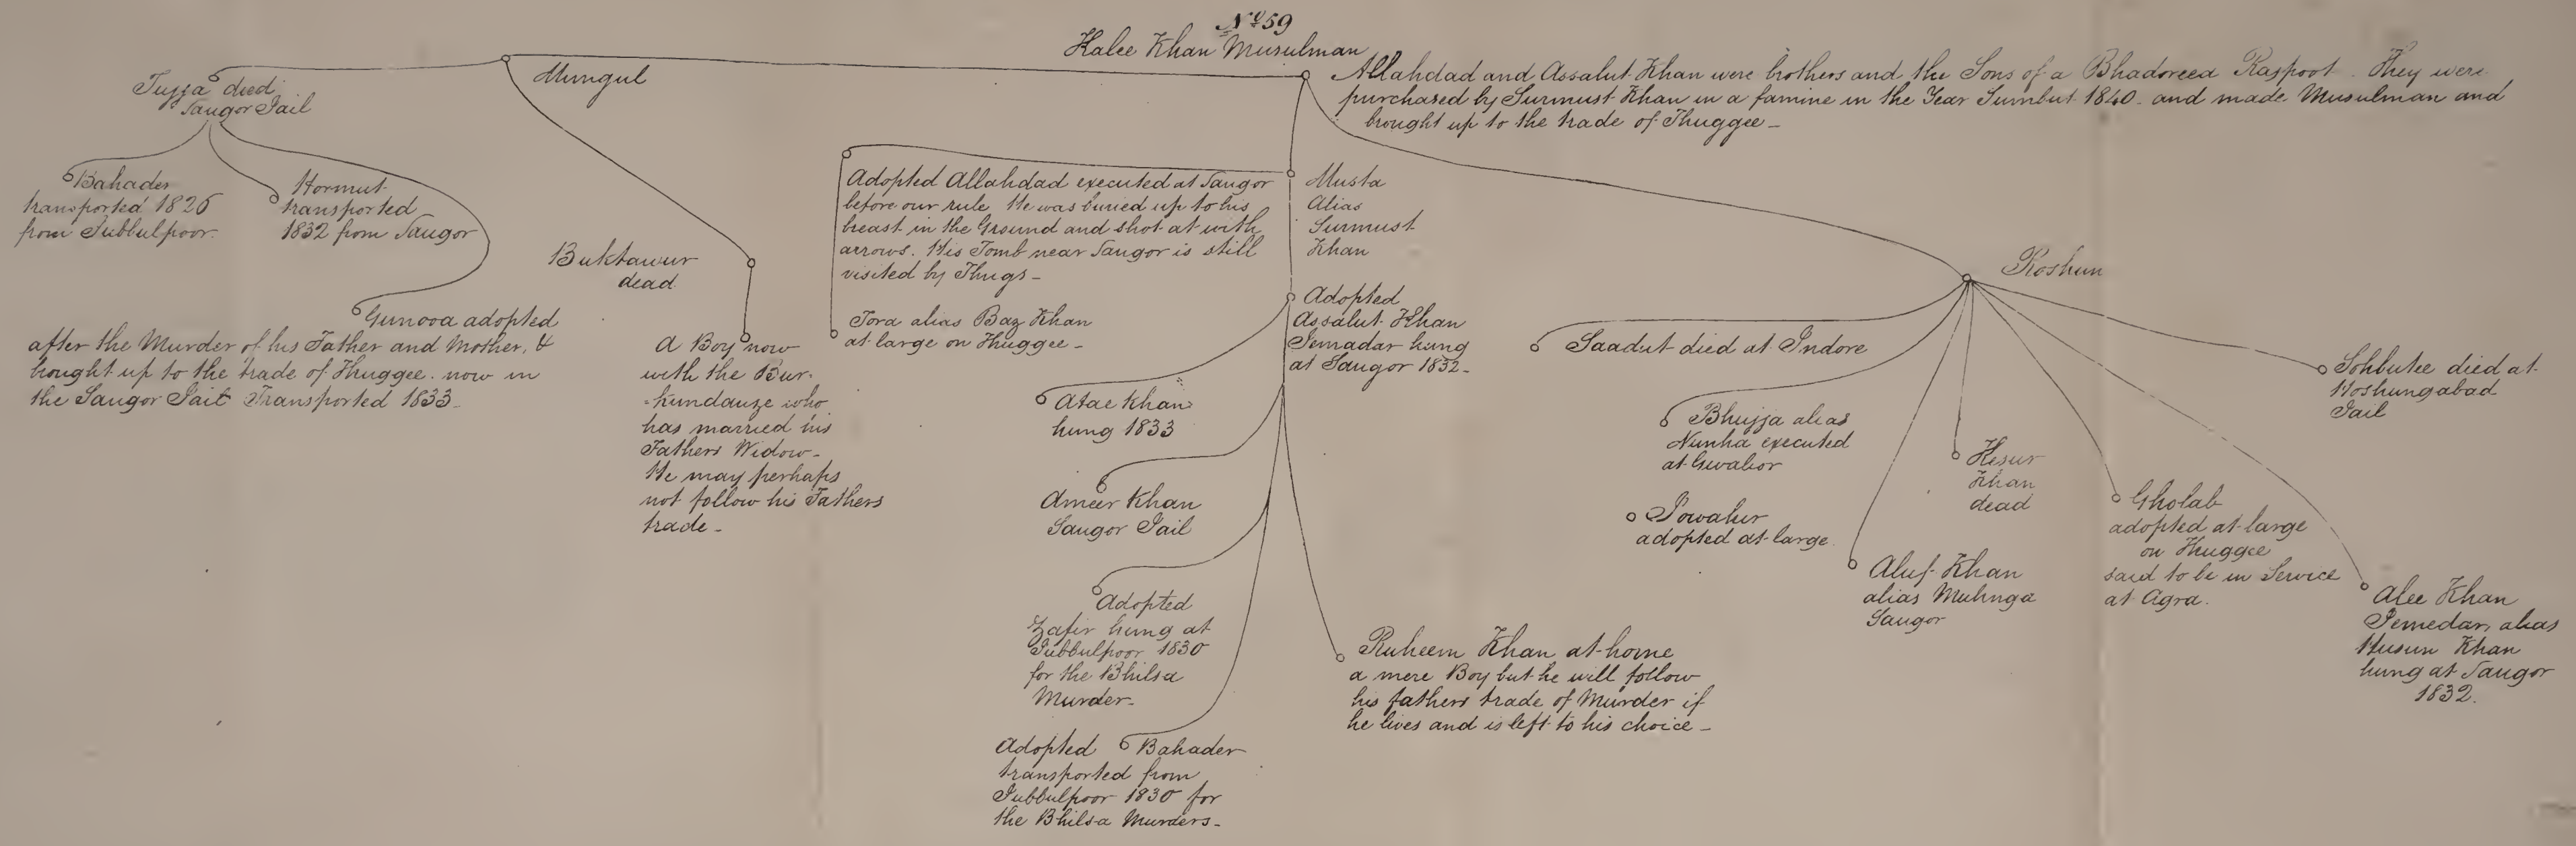 No 59
Kalee Khan Musulman
Allahdad and Assalut Khan were brothers and the Sons of a Bhadoreea Raspoot. They were
purchased by Surmust Khan in a famine in the Year Sumbut 1840 and made Musulman and
brought up to the trade of Thuggee _
Mungul
Tujja died
Saugor Jail
Bahader
transported 1826
from Jubbulpoor.
Hormut
transported
1832 from Saugor
Gunooa adopted
after the Murder of his Father and Mother, &
brought up to the trade of Thuggee. now in
the Saugor Jail Transported 1833 _
Buktawur
dead
A Boy now
with the Bur-
-kundauze who
has married his
Fathers Widow _
He may perhaps
not follow his Fathers
trade _
Adopted Allahdad executed at Saugor
before our rule He was buried up to his
breast in the Ground and shot at with
arrows. His Tomb near Saugor is still
visited by Thugs _
Jora alias Baz Khan
at large on Thuggee _
Musta
Alias
Surmust
Khan
Adopted
Assalut Khan
Jemadar hung
at Saugor 1832 _
Atae Khan
hung 1833
Ameer Khan
Saugor Jail
Adopted
Zafir hung at
Jubbulpoor 1830
for the Bhilsa
Murder _
Adopted Bahader
transported from
Jubbulpoor 1830 for
the Bhilsa Murders _
Ruheem Khan at home
a mere Boy but he will follow
his fathers trade of Murder if
he lives and is left to his choice _
Roshun
Saadut died at Indore
Bhujja alias
Nunha executed
at Gwalior
Jowahir
adopted at large
Aluf Khan
alias Muhnga
Saugor
Kesur
Khan
dead
Gholab
adopted at large
on Thuggee
said to be in Service
at Agra.
Sohbutee died at
Hoshungabad
Jail
Alee Khan
Jemedar, alias
Husun Khan
hung at Saugor
1832.